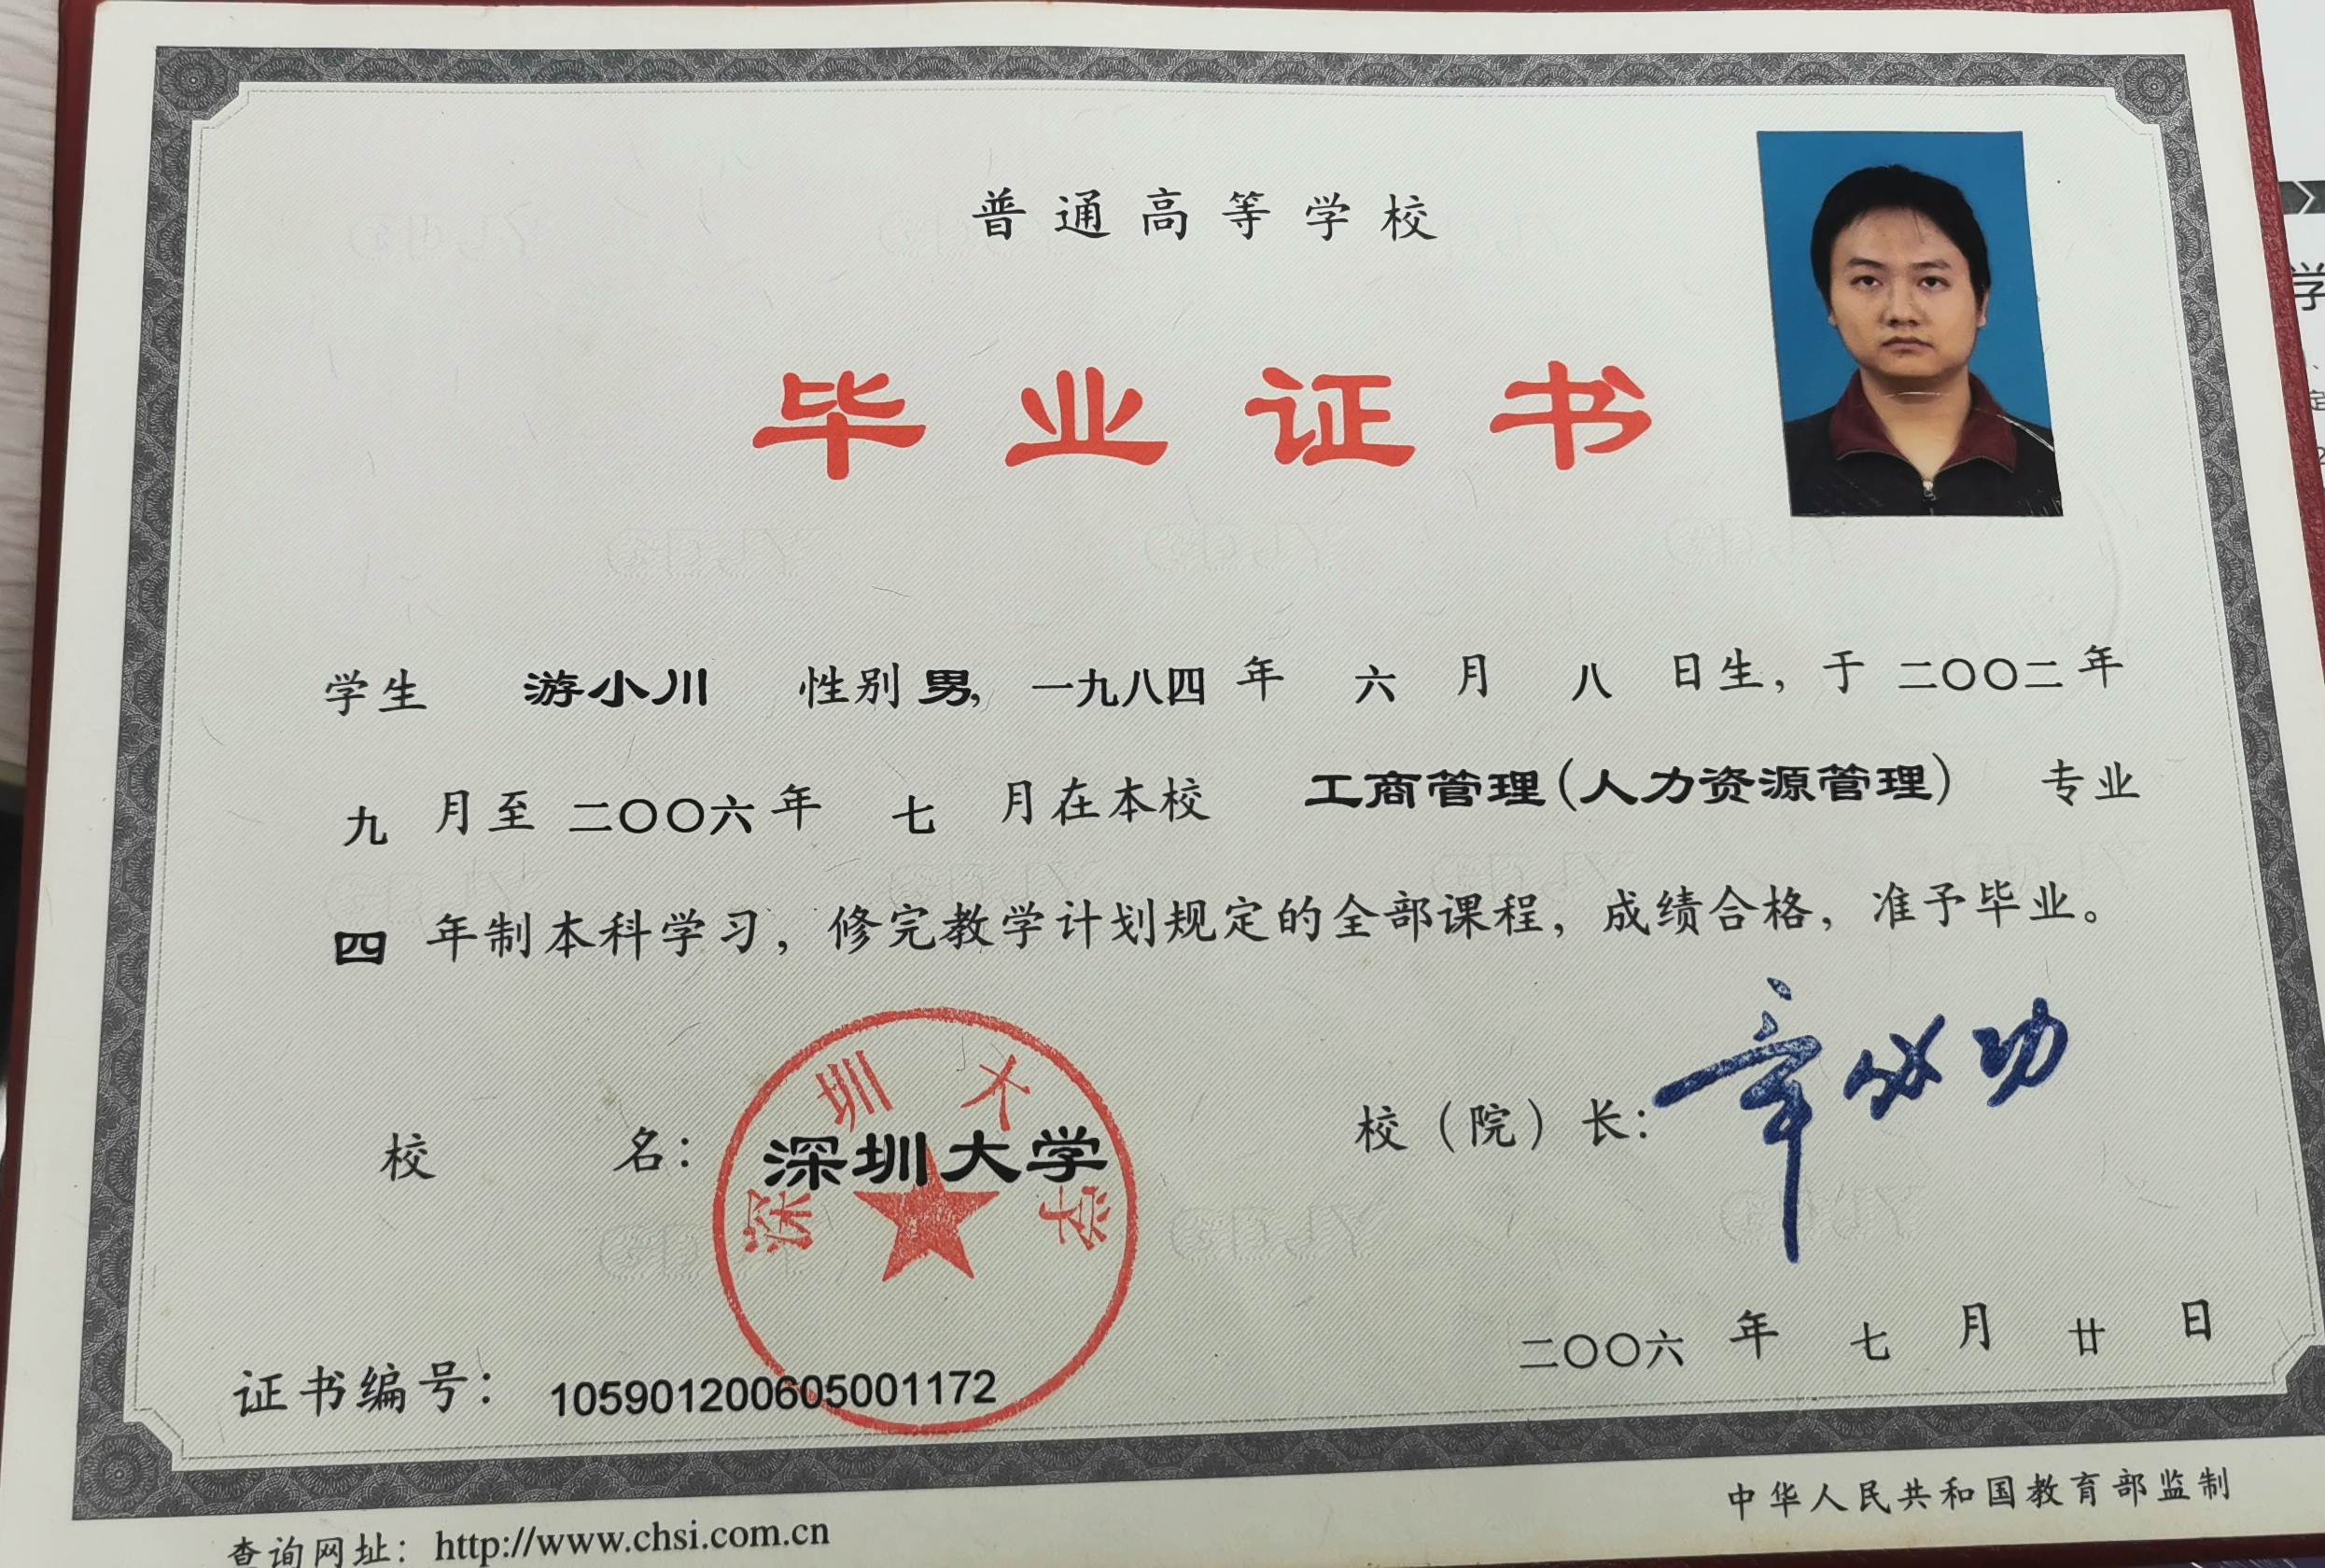 普通高等学校
毕业证书
学生 游小川 性别 男，一九八四 年 六 月 八 日生，于 二〇〇二 年
九 月至 二〇〇六 年 七 月在本校 工商管理(人力资源管理) 专业
四 年制本科学习，修完教学计划规定的全部课程，成绩合格，准予毕业。
深圳大学
校 名： 深圳大学
校（院）长：章必功
二〇〇六 年 七 月 廿 日
证书编号： 105901200605001172
中华人民共和国教育部监制
查询网址：http://www.chsi.com.cn
学
定